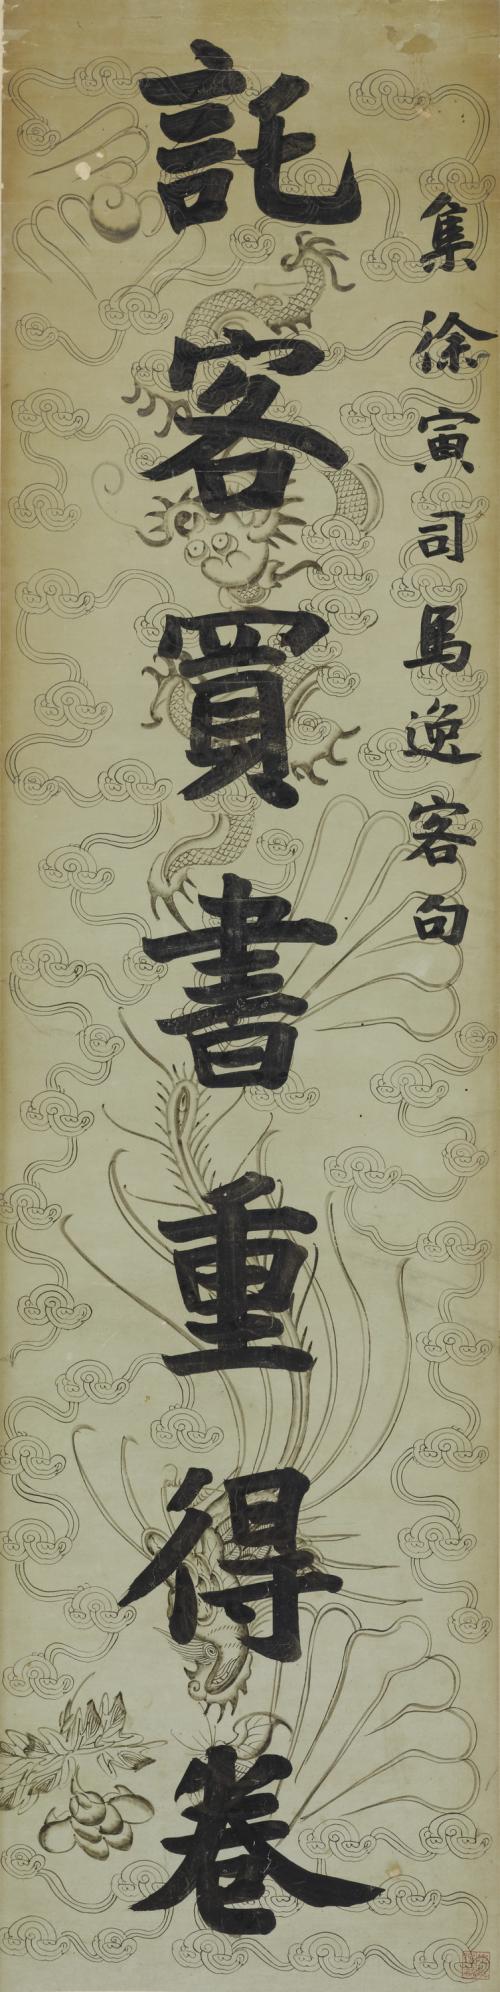 集徐寅司馬逸客句
託客買書重得卷